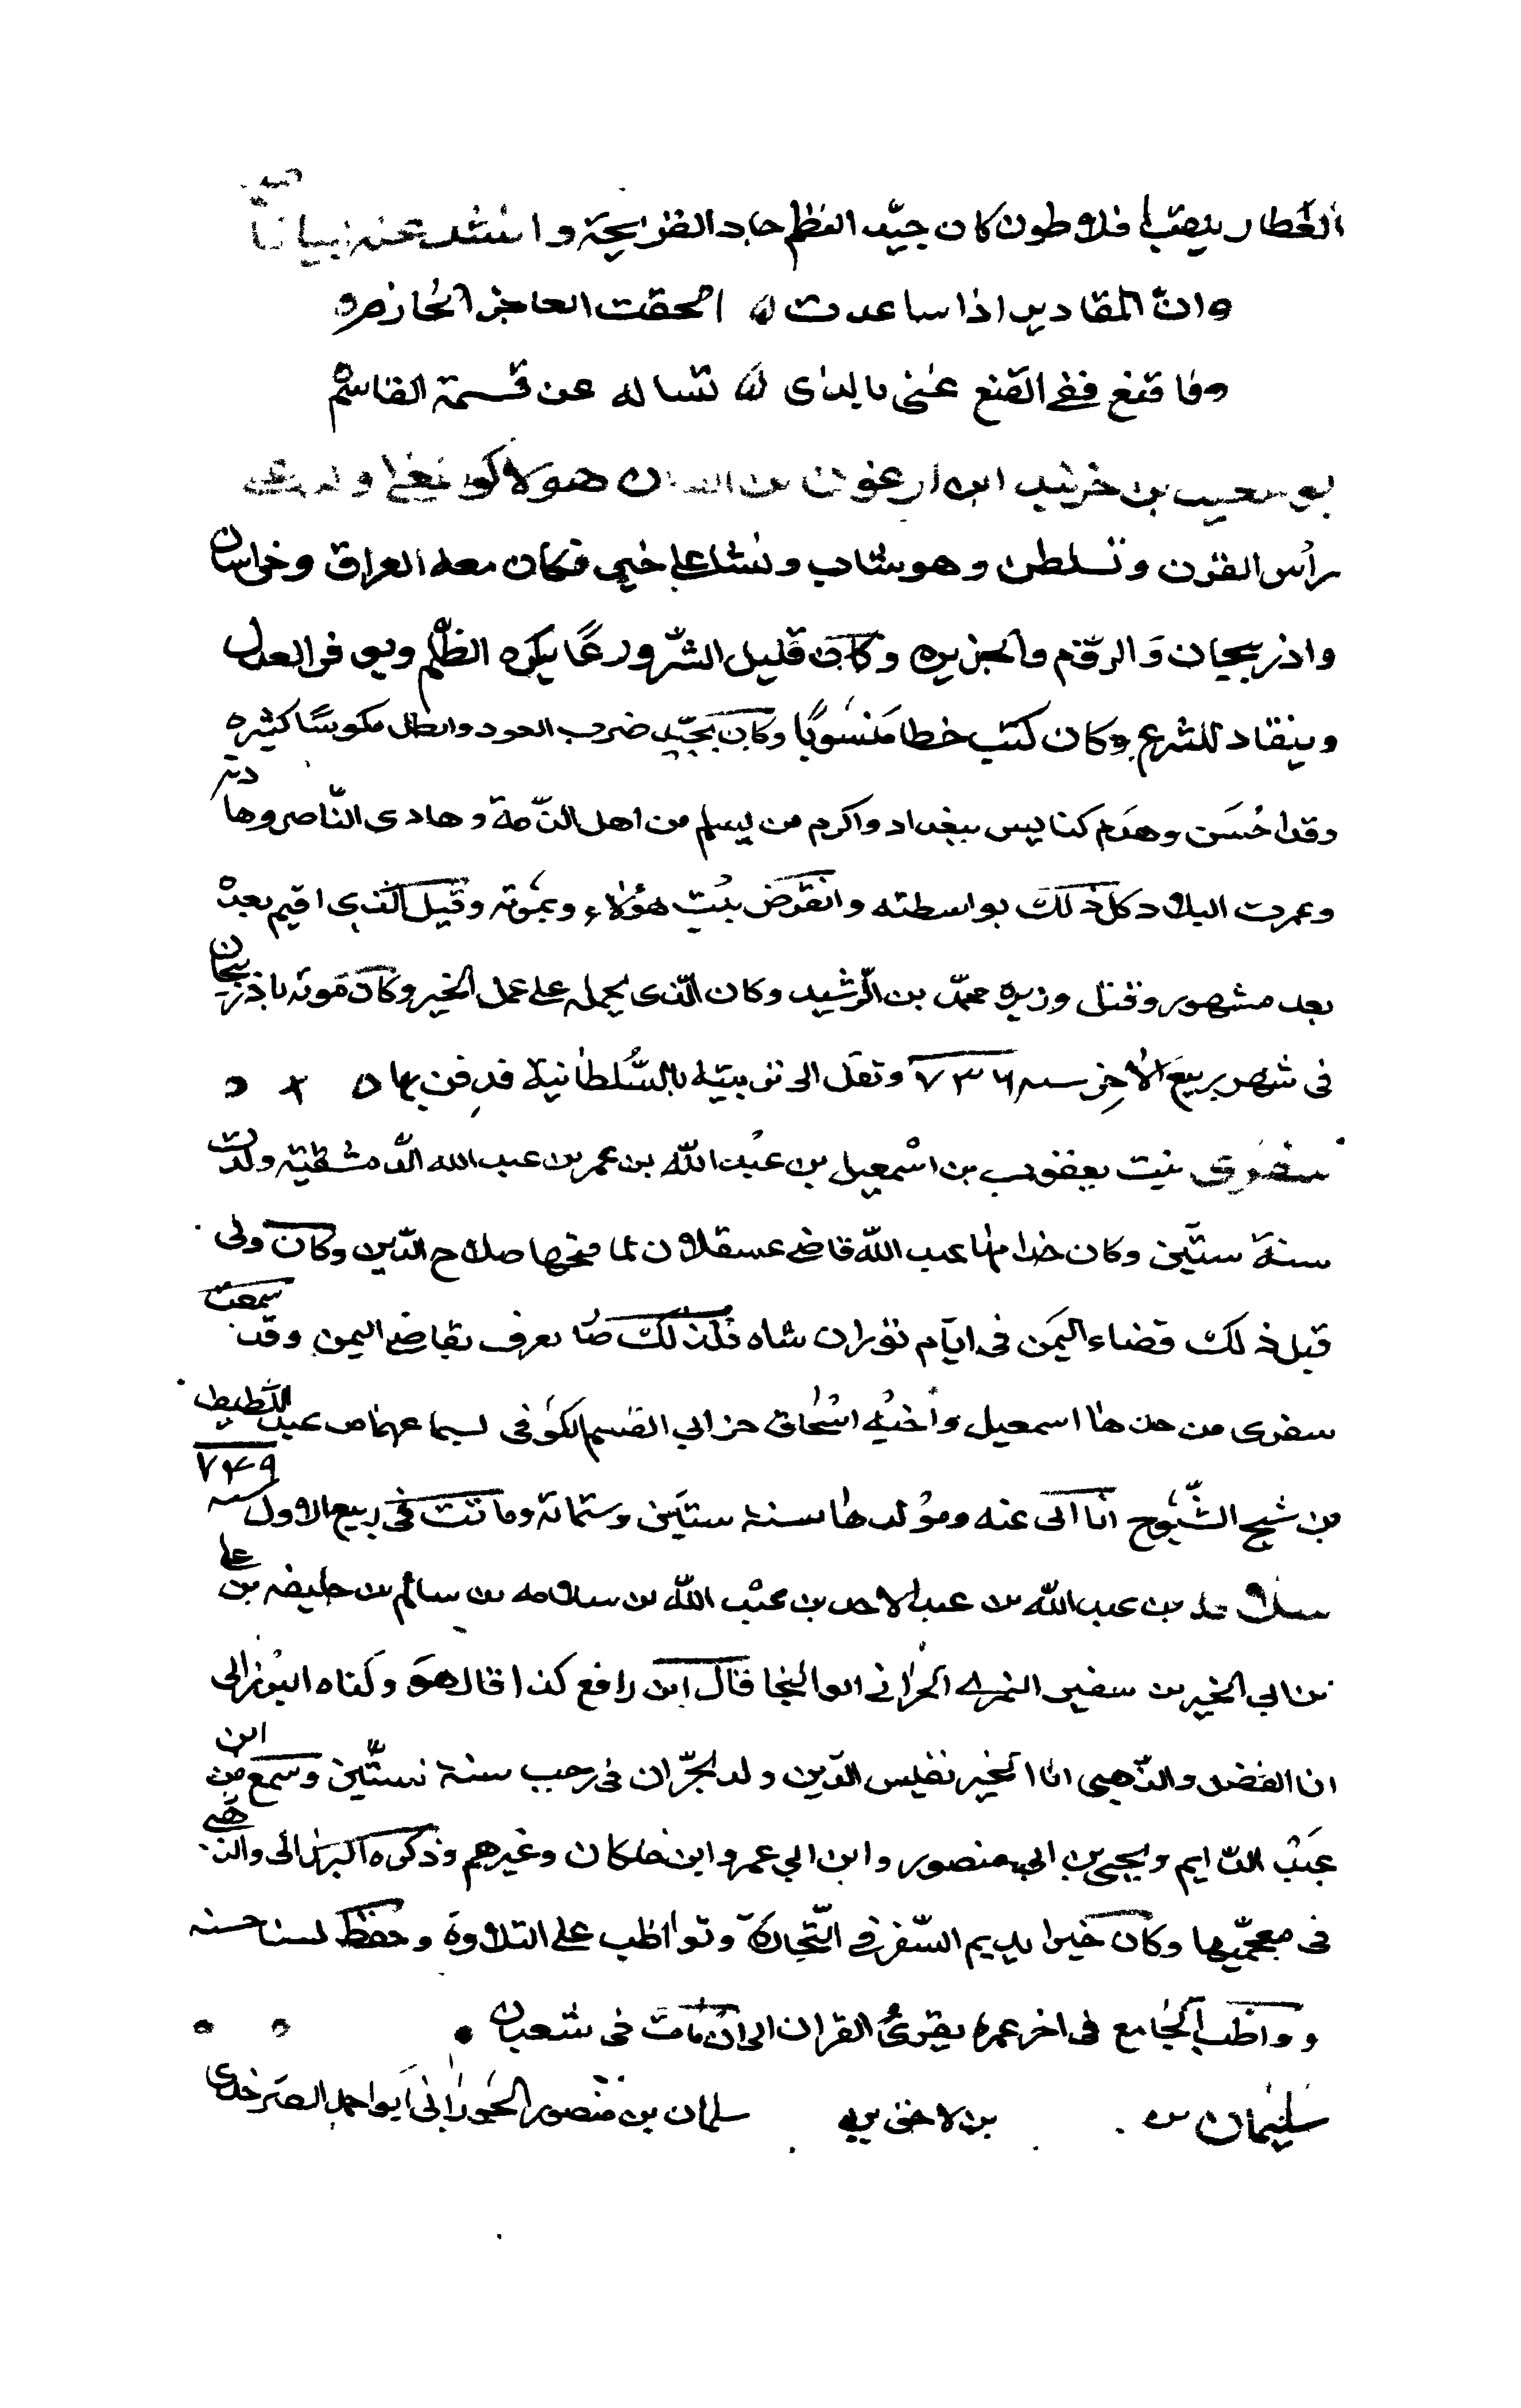 العطار يلقب افلاطون كان جيّد النظم حاد القريحة وانشد عنه ابياتا
وانّ المقادير اذا ساعدت الحقت العاجز الحازم
فاقنع ففى القنع غنى بالذى تساله عن قسمة القاسم
بو سعيد بن خربند ابن ارغون بن هولاكو المغلى ولد على
رأس القرن وتسلطن وهو شاب ونشا على خير فكان معه العراق وخراسان
واذربيجان والروم والجزيره وكان قليل الشّر ورعًا يكره الظلم ويوفر العدل
وينقاد للشرع وكان كتب خطا منسوبًا وكان يجيد ضرب العود وابطل مكوسًا كثيره
وقد احسن وهدم كنايس ببغداد واكرم من يسلم من اهل الذّمة وهادى النّاصر وهادنه
وعمرت البلاد كل ذلك بواسطته وانقرض بيت هؤلاء وبموته وقيل الذى اقيم بعده
بعد مشهور وقتل وزيره محمّد بن الرّشيد وكان الّذى يحمله على عمل الخير وكان موته باذربيجان
فى شهر ربيع الاخر سنه ٧٣٦ ونقل الى تربيته بالسّلطانية فدفن بها
سفرى بنت يعقوب بن اسمعيل بن عبد اللّه بن عمر بن عبد الله الدّمشقية ولدت
سنة ستّين وكان عبد اللّه قاضى عسقلان لما فتحها صلاح الدّين وكان ولى
قبل ذلك قضاء اليمن فى ايّام توران شاه فلذلك صار يعرف بقاضى اليمن وقد سمعت
سفرى من جدها اسمعيل واخيه اسحاق جز ابى القسم الكوفى بسماعهما من عبد اللّطيف
بن شيخ الشّيوخ انا ابى عنه ومولدها سنة ستّين وستمائة وماتت فى ربيع الاول سنه ٧٤٩
سلامه بن عبد اللّه بن عبد الاحد بن عبد اللّه بن سلامه بن سالم بن خليفه بن على
بن ابى الخير بن سفير النميرى الحرّانى ابو النجا قال ابن رافع كذا قال هو وكناه البرزالى
ابا الفضل والذّهبى ابا الخير نفيس الدّين ولد بحرّان فى رجب سنة ستّين وسمع من ابن
عبد الدّايم ويحيى بن ابى منصور وابن ابى عمر وابن خلكان وغيرهم وذكره البرزالى والذّهبى
فى معجميهما وكان خيرا يديم السّفر فى التّجارة وتواظب على التلاوة وحفظ لسنا حسنه
وواظب الجامع فى اخر عمره يقرئ القران الى ان مات فى شعبان
سليمان بن بن لاحق بن سلمان بن منصور الحورانى ابو احمد الصرخدى